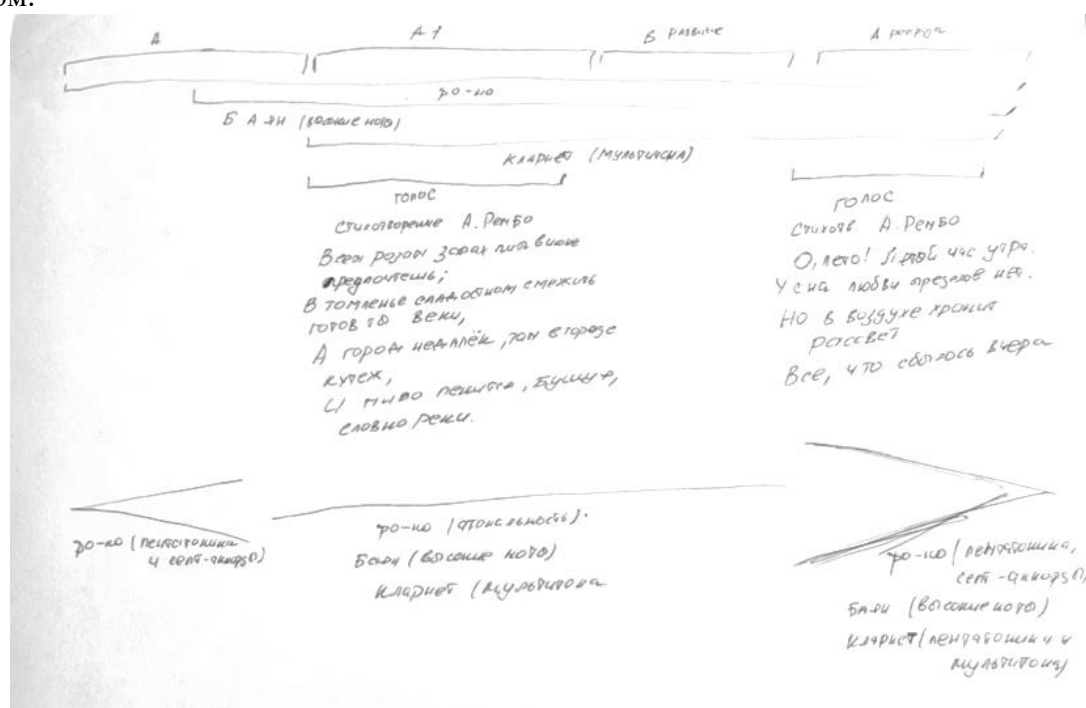 ом.
А А 1 В развитие А реприза
ф-но
Баян (высокие ноты)
кларнет (мультифон)
голос
Стихотворение А. Рембо
Всем розам запах пива вновь
предпочтешь;
В томленье сладостном смежить
готов ты веки,
А город недалёк, там в городе
кутёж,
И пиво пенится, бушуя,
словно реки.
голос
Стихотв. А. Рембо
О, лето! Пятый час утра.
У сна любви пределов нет.
Но в воздухе хранит
рассвет
Все, что сбылось вчера
ф-но (пентатоника
и септ-аккорды)
ф-но (атональность).
Баян (высокие ноты)
Кларнет (мультитона
ф-но (пентатоника,
септ-аккорды)
Баян (высокие ноты)
Кларнет (пентатоника и
мультитоны)